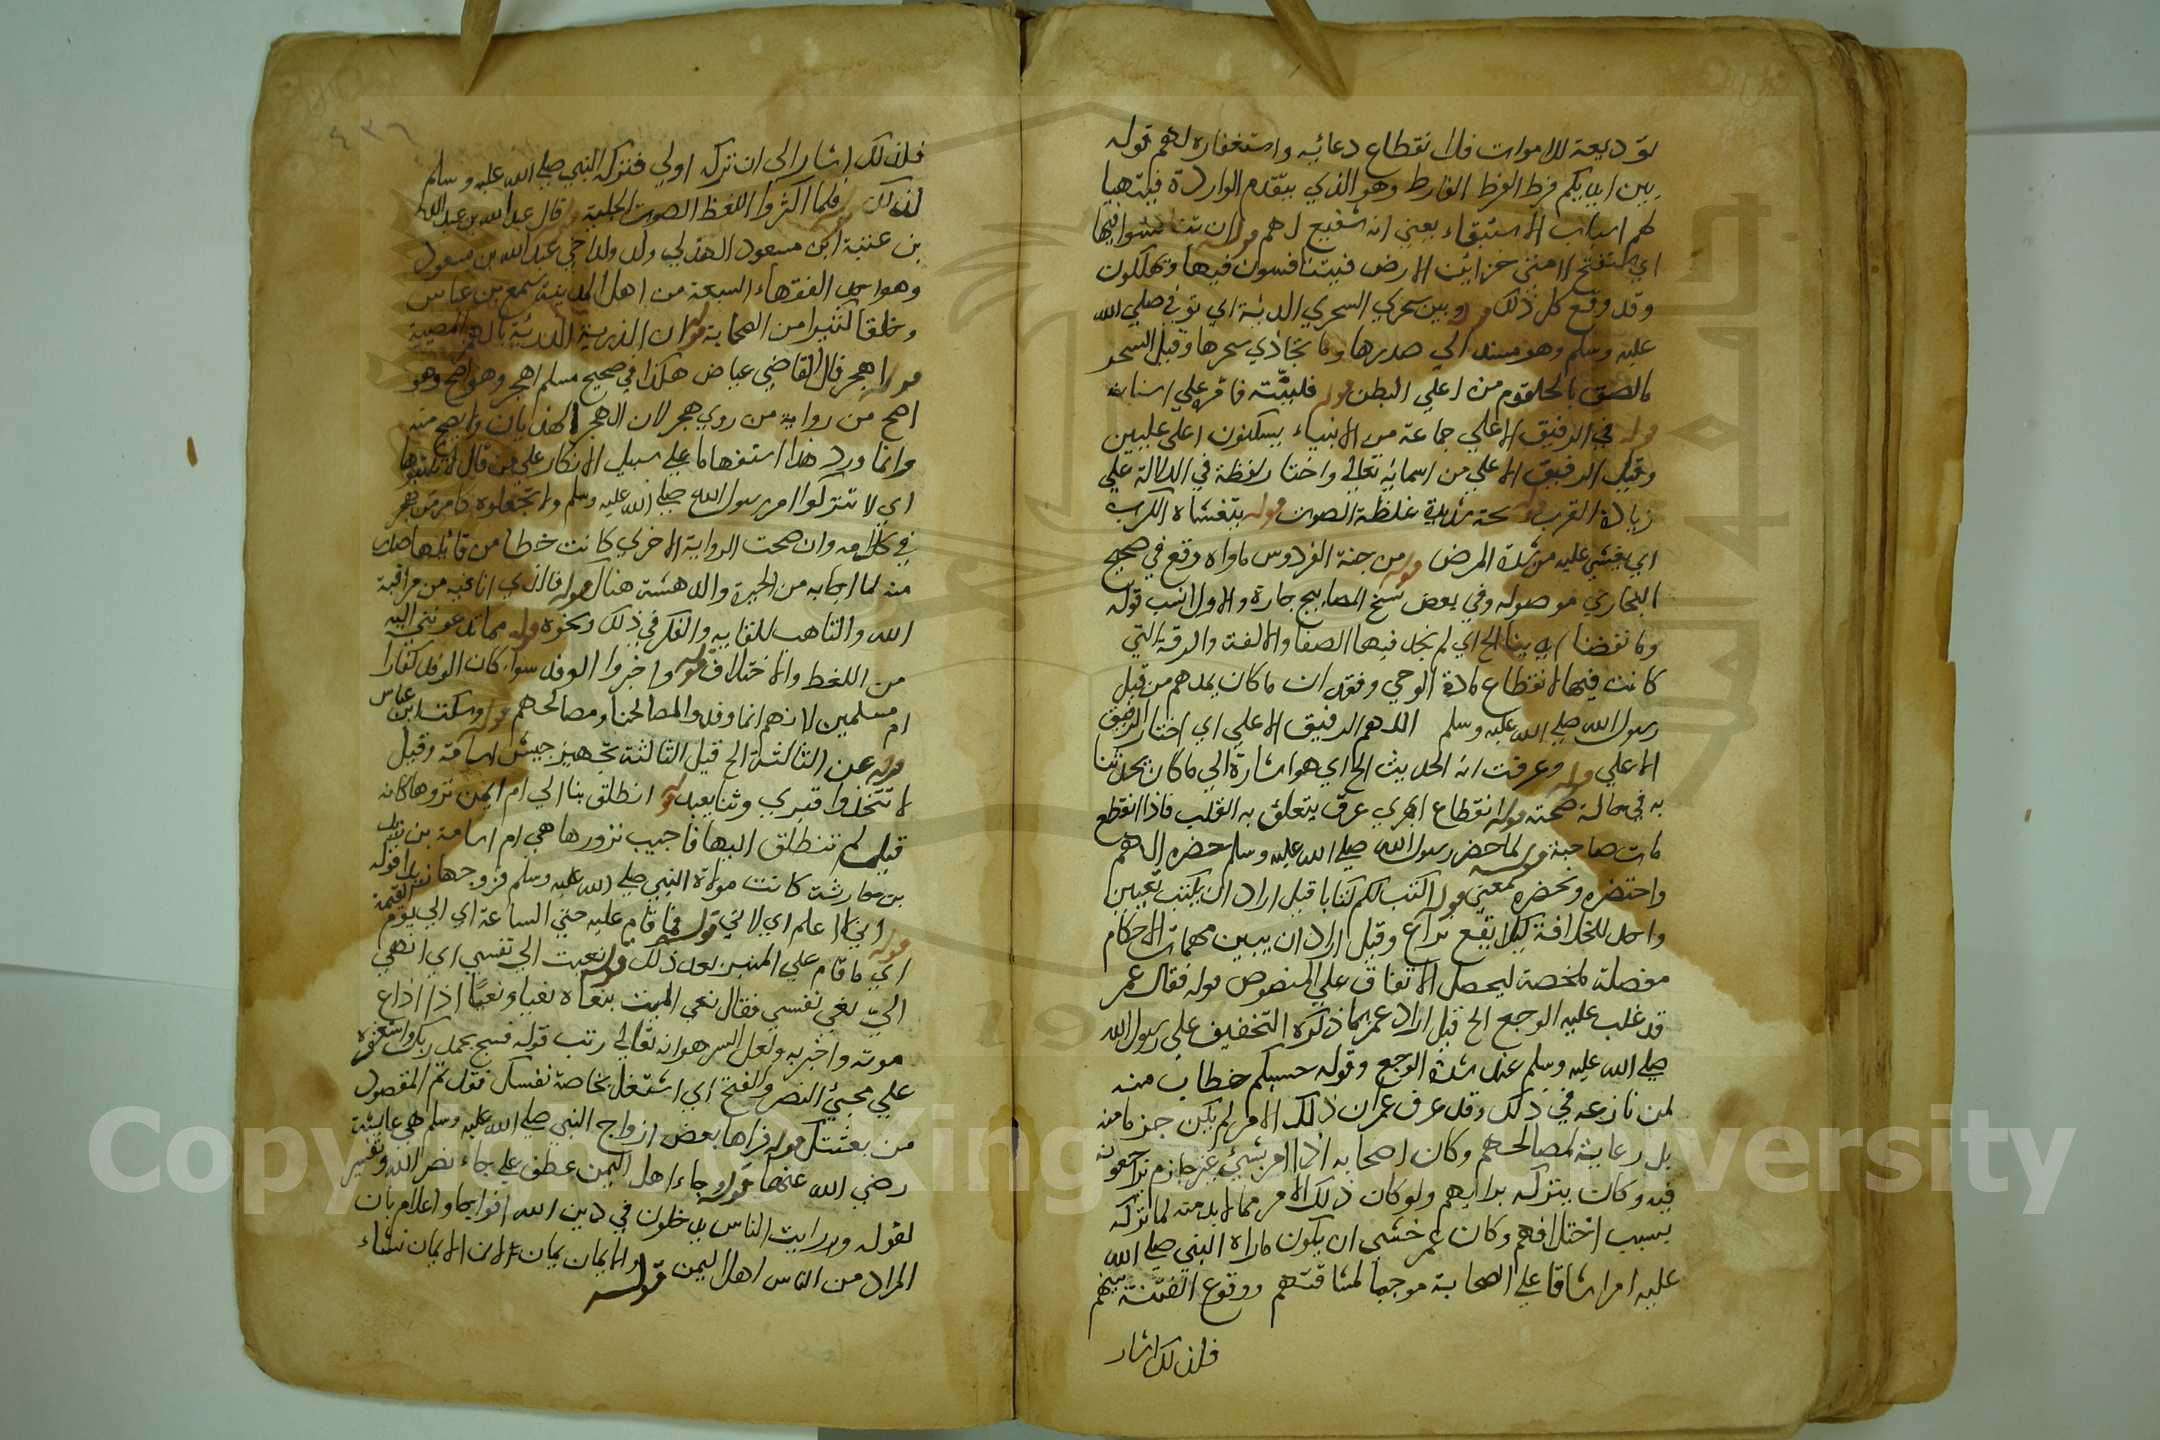 توديعه للاموات فلانقطاع دعائه واستغفاره لهم قوله
بين ايديكم فرط الفرط الفارط وهو الذي يتقدم الواردة فيتهيا
لهم اسباب الاستبقاء يعني انه شفيع لهم قوله ان تنافسوا فيها
اي ستفتح لامتي خزائن الارض فيتنافسون فيها وتهلكون
وقد وقع كل ذلك قوله وبين سحري السحر الرية اي توفي صلي الله
عليه وسلم وهو مستند الي صدرها وما يحاذي سحرها وقيل السحر
مالصق بالحلقوم من اعلي البطن قوله فلينته فامره علي اسنانه
قوله في الرفيق الاعلي جماعة من الانبياء يسكنون اعلي عليين
وقيل الرفيق الاعلي من اسمائه تعالي واختار لفظة في الدلالة علي
زيادة القرب قوله بحة شديدة غلظة الصوت قوله يتغشاه الكرب
اي يغشي عليه من شدة المرض قوله من جنة الفردوس ماواه وقع في صحيح
البخاري موصوله وفي بعض نسخ المصابيح جاره والاول انسب قوله
وما نفضنا ايدينا الخ اي لم نجد فيها الصفا والالفة والرقة التي
كانت فيها لانقطاع مادة الوحي وفقدان ما كان يمدهم من قبل
رسول الله صلي الله عليه وسلم اللهم الرفيق الاعلي اي اختار الرفيق
الاعلي قوله وعرفت انه الحديث الخ اي هو اشارة الي ما كان يحدثنا
به في حالة صحته قوله انقطاع ابهري عرق يتعلق به القلب فاذا انقطع
مات صاحبه قوله لما حضر رسول الله صلي الله عليه وسلم حضره الهم
واحتضره وتحضره بمعني قوله اكتب لكم كتابا قيل اراد ان يكتب تعيين
واحد للخلافة ليلا يقع نزاع وقيل اراد ان يبين مهمات الاحكام
مفصلة ملخصة ليحصل الاتفاق علي المنصوص قوله فقال عمر
قد غلب عليه الوجع الخ قيل اراد عمر بما ذكره التخفيف علي رسول الله
صلي الله عليه وسلم عند شدة الوجع وقوله حسبكم خطاب منه
لمن نازعه في ذلك وقد عرف عمر ان ذلك الامر لم يكن جزما منه
بل رعاية لمصالحهم وكان اصحابه اذا امر بشيء غير جازم يراجعونه
فيه وكان يتركه برايهم ولو كان ذلك الامر مما لابد منه لما تركه
بسبب اختلافهم وكان عمر خشي ان يكون ماراه النبي صلي الله
عليه امرا شاقا علي الصحابة موجبا لمشاقتهم ووقوع الفتنة بينهم
فلذلك اشار
٤٣٦
فلذلك اشار الي ان تركه اولي فتركه النبي صلي الله عليه وسلم
لذلك قوله فلما اكثروا اللغط الصوت الجلبة قوله قال عبد الله بن عبد الله
بن عتبة ابن مسعود الهذلي ولد ولد اخي عبد الله بن مسعود
وهو احد الفقهاء السبعة من اهل المدينة سمع بن عباس
وخلقا كثيرا من الصحابة قوله ان الرزية الرزيئة بالهمز المصيبة
قوله اهجر قال القاضي عياض هكذا في صحيح مسلم اهجر وهو اصح وهو
اصح من رواية من روي هجر لان الهجر الهذيان ولا يصح منه
وانما ورد هذا استفهاما علي سبيل الانكار علي من قال لا تكتبوها
اي لا تتركوا امر رسول الله صلي الله عليه وسلم ولا تجعلوه كامر من هجر
في كلامه وان صحت الرواية الاخري كانت خطا من قائلها صدر
منه لما اصابه من الحيرة والدهشة هناك قوله فالذي انا فيه من مراقبة
الله والتاهب للقايه والفكر في ذلك ونحوه قوله مما تدعونني اليه
من اللغط والاختلاف قوله واخبروا الوفد سواء كان الوفد كفارا
ام مسلمين لانهم انما وفدوا لمصالحنا ومصالحهم قوله وسكت ابن عباس
قوله عن الثالثة الخ قيل الثالثة تجهيز جيش اسامة وقيل
لا تتخذوا قبري وثنا يعبد قوله انطلق بنا الي ام ايمن نزورها كانه
قيل لم تنطلق اليها فاجيب نزورها هي ام اسامة بن زيد
بن حارثة كانت مولاة النبي صلي الله عليه وسلم فزوجها زيدا قوله
اني لا اعلم اي لاني قوله فما قام عليه حتي الساعة اي الي يوم القيمة
قوله اي ما قام علي المنبر بعد ذلك قوله نعيت الي نفسي اي انهي
الي نعي نفسي فقال نعي الميت ينعاه نعيا ونعيا اذا اذاع
موته واخبر به ولعل السر هو انه تعالي رتب قوله فسبح بحمد ربك واستغفره
علي مجيئ النصر والفتح اي اشتغل بخاصة نفسك فقد تم المقصود
من بعثتك قوله فراها بعض ازواج النبي صلي الله عليه وسلم هي عايشة
رضي الله عنها قوله وجاء اهل اليمن عطف علي جاء نصر الله وتفسير
لقوله ورايت الناس يدخلون في دين الله افواجا واعلام بان
المراد من الناس اهل اليمن قوله والايمان يمان لان الايمان نشاء